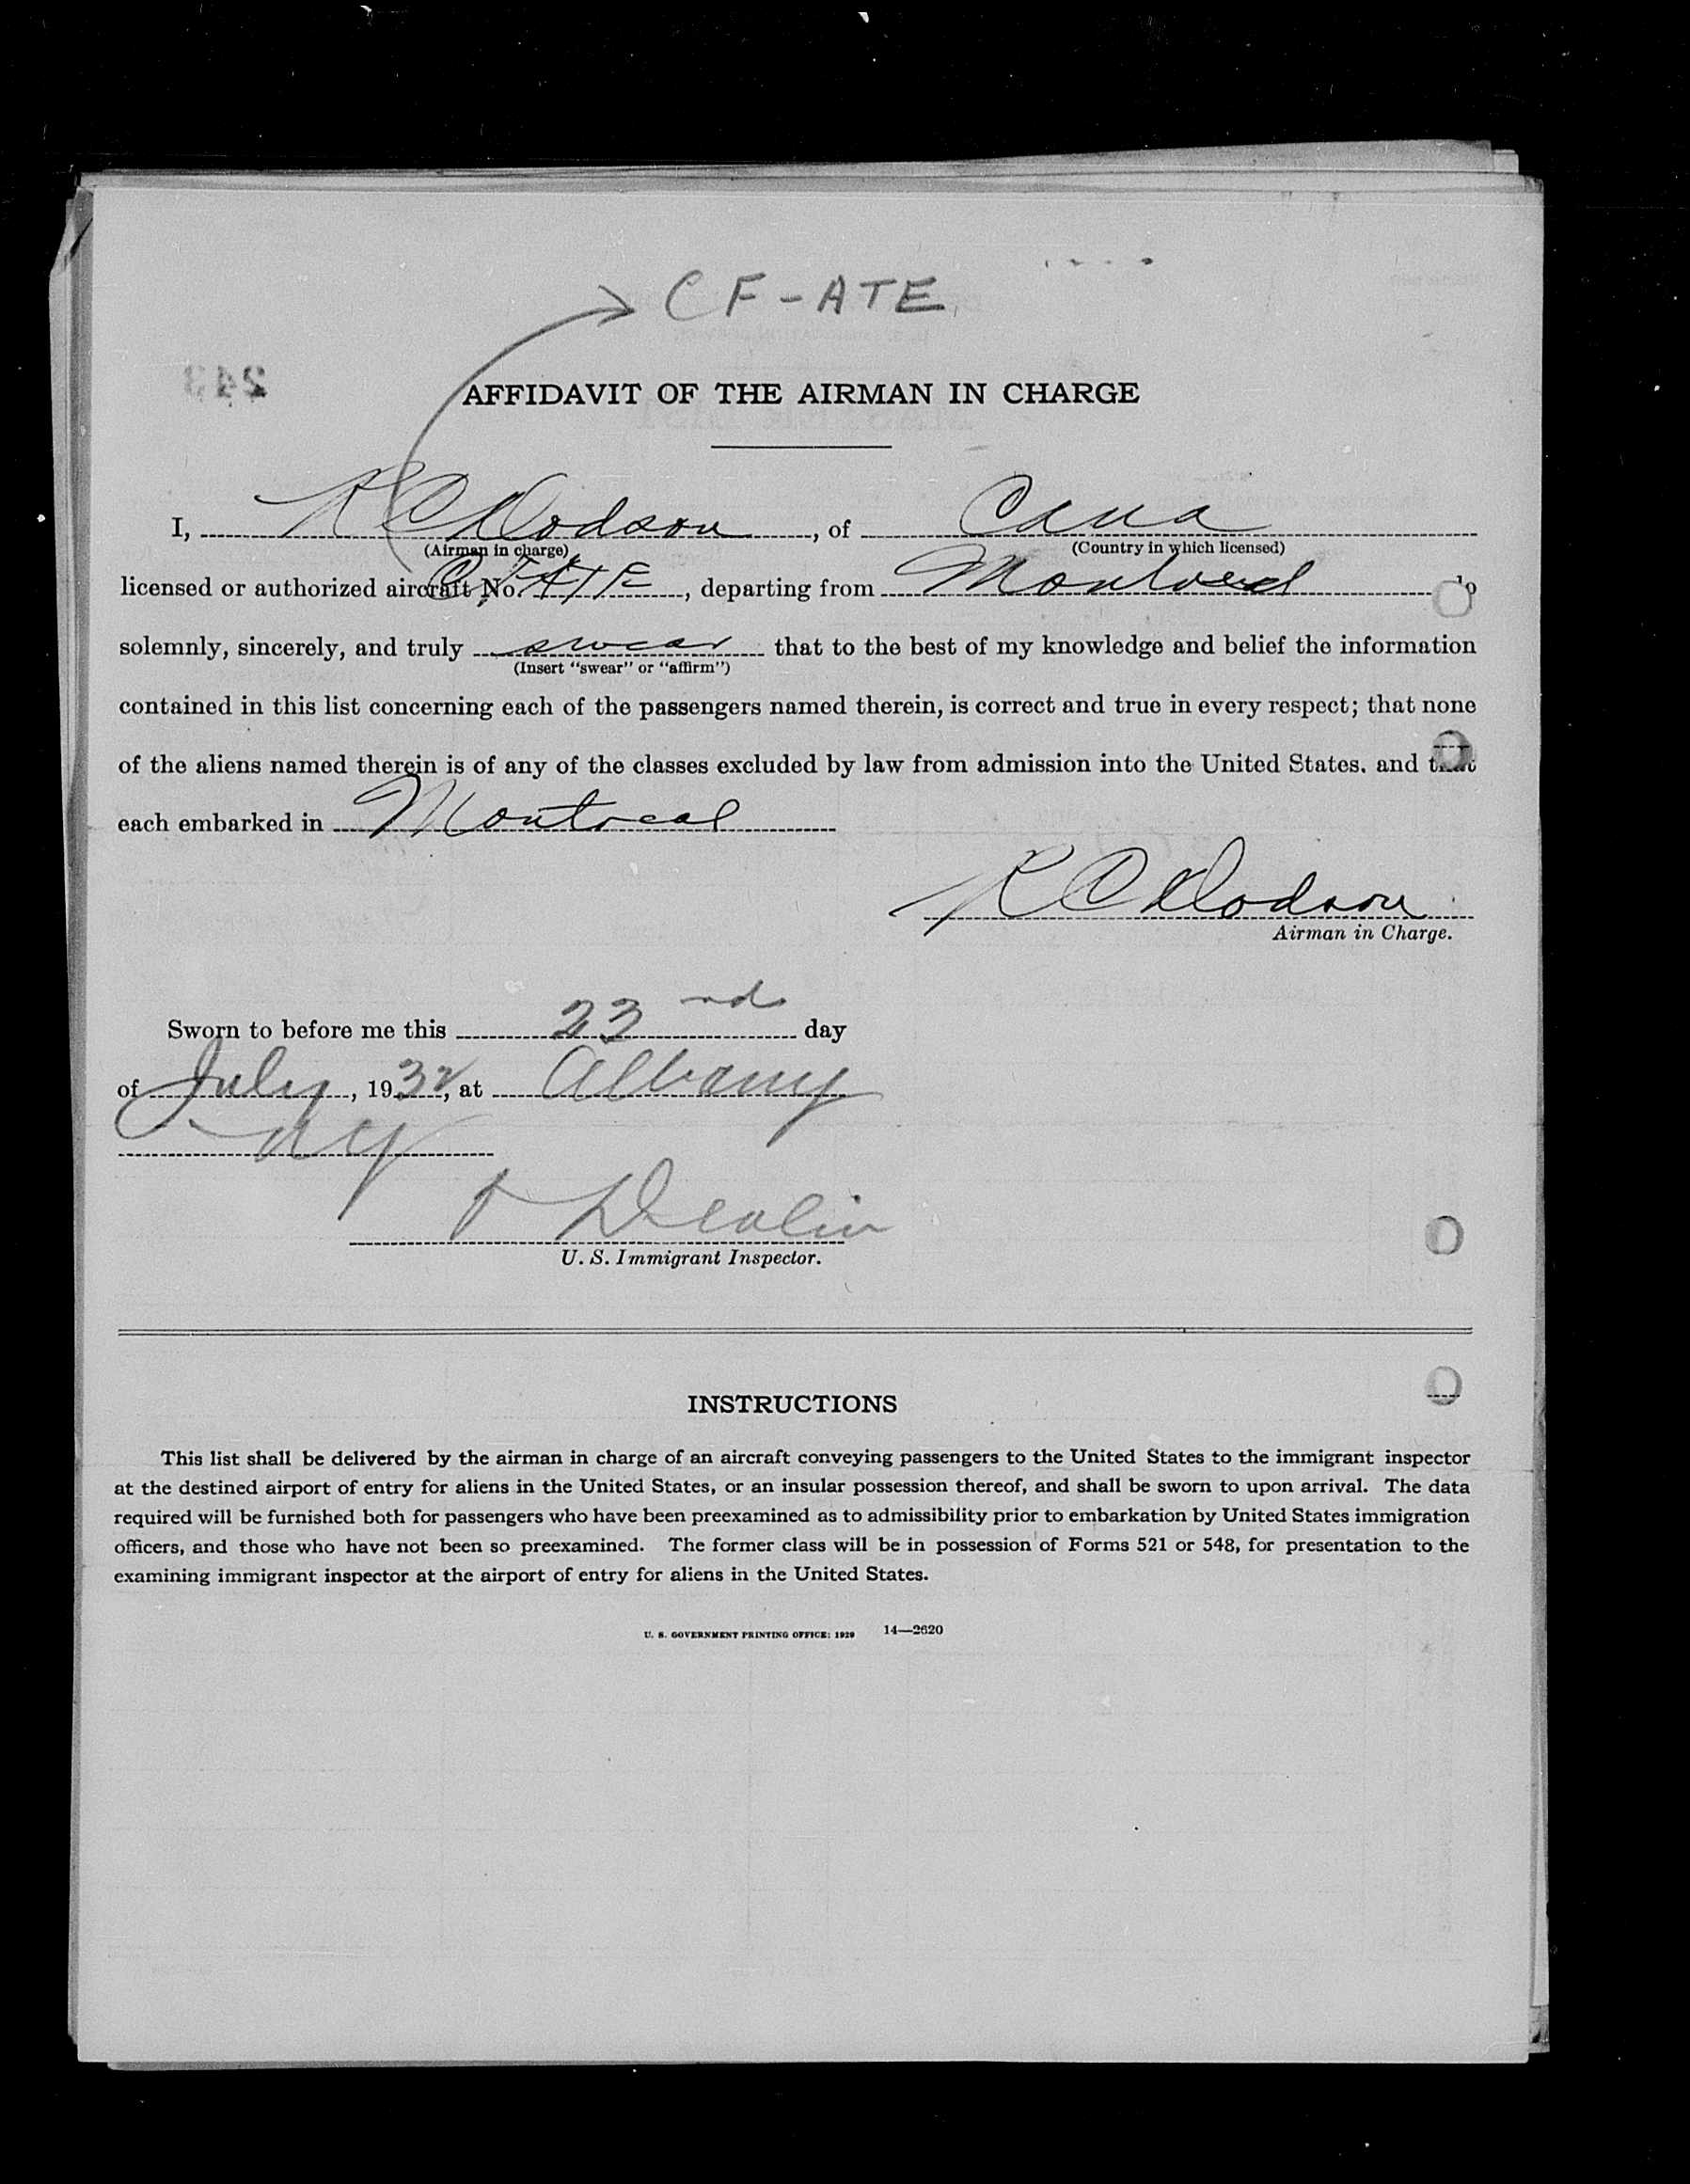 CF-ATE
243
AFFIDAVIT OF THE AIRMAN IN CHARGE
I, R C Dodson, of Cana
(Airman in charge) (Country in which licensed)
licensed or authorized aircraft No. CFATE, departing from Montreal do
solemnly, sincerely, and truly swear that to the best of my knowledge and belief the information
(Insert "swear" or "affirm")
contained in this list concerning each of the passengers named therein, is correct and true in every respect; that none
of the aliens named therein is of any of the classes excluded by law from admission into the United States, and that
each embarked in Montreal
R C Dodson
Airman in Charge.
Sworn to before me this 23rd day
of July, 1932, at Albany
NY
Devlin
U. S. Immigrant Inspector.
INSTRUCTIONS
This list shall be delivered by the airman in charge of an aircraft conveying passengers to the United States to the immigrant inspector
at the destined airport of entry for aliens in the United States, or an insular possession thereof, and shall be sworn to upon arrival. The data
required will be furnished both for passengers who have been preexamined as to admissibility prior to embarkation by United States immigration
officers, and those who have not been so preexamined. The former class will be in possession of Forms 521 or 548, for presentation to the
examining immigrant inspector at the airport of entry for aliens in the United States.
U. S. GOVERNMENT PRINTING OFFICE: 1929 14—2620